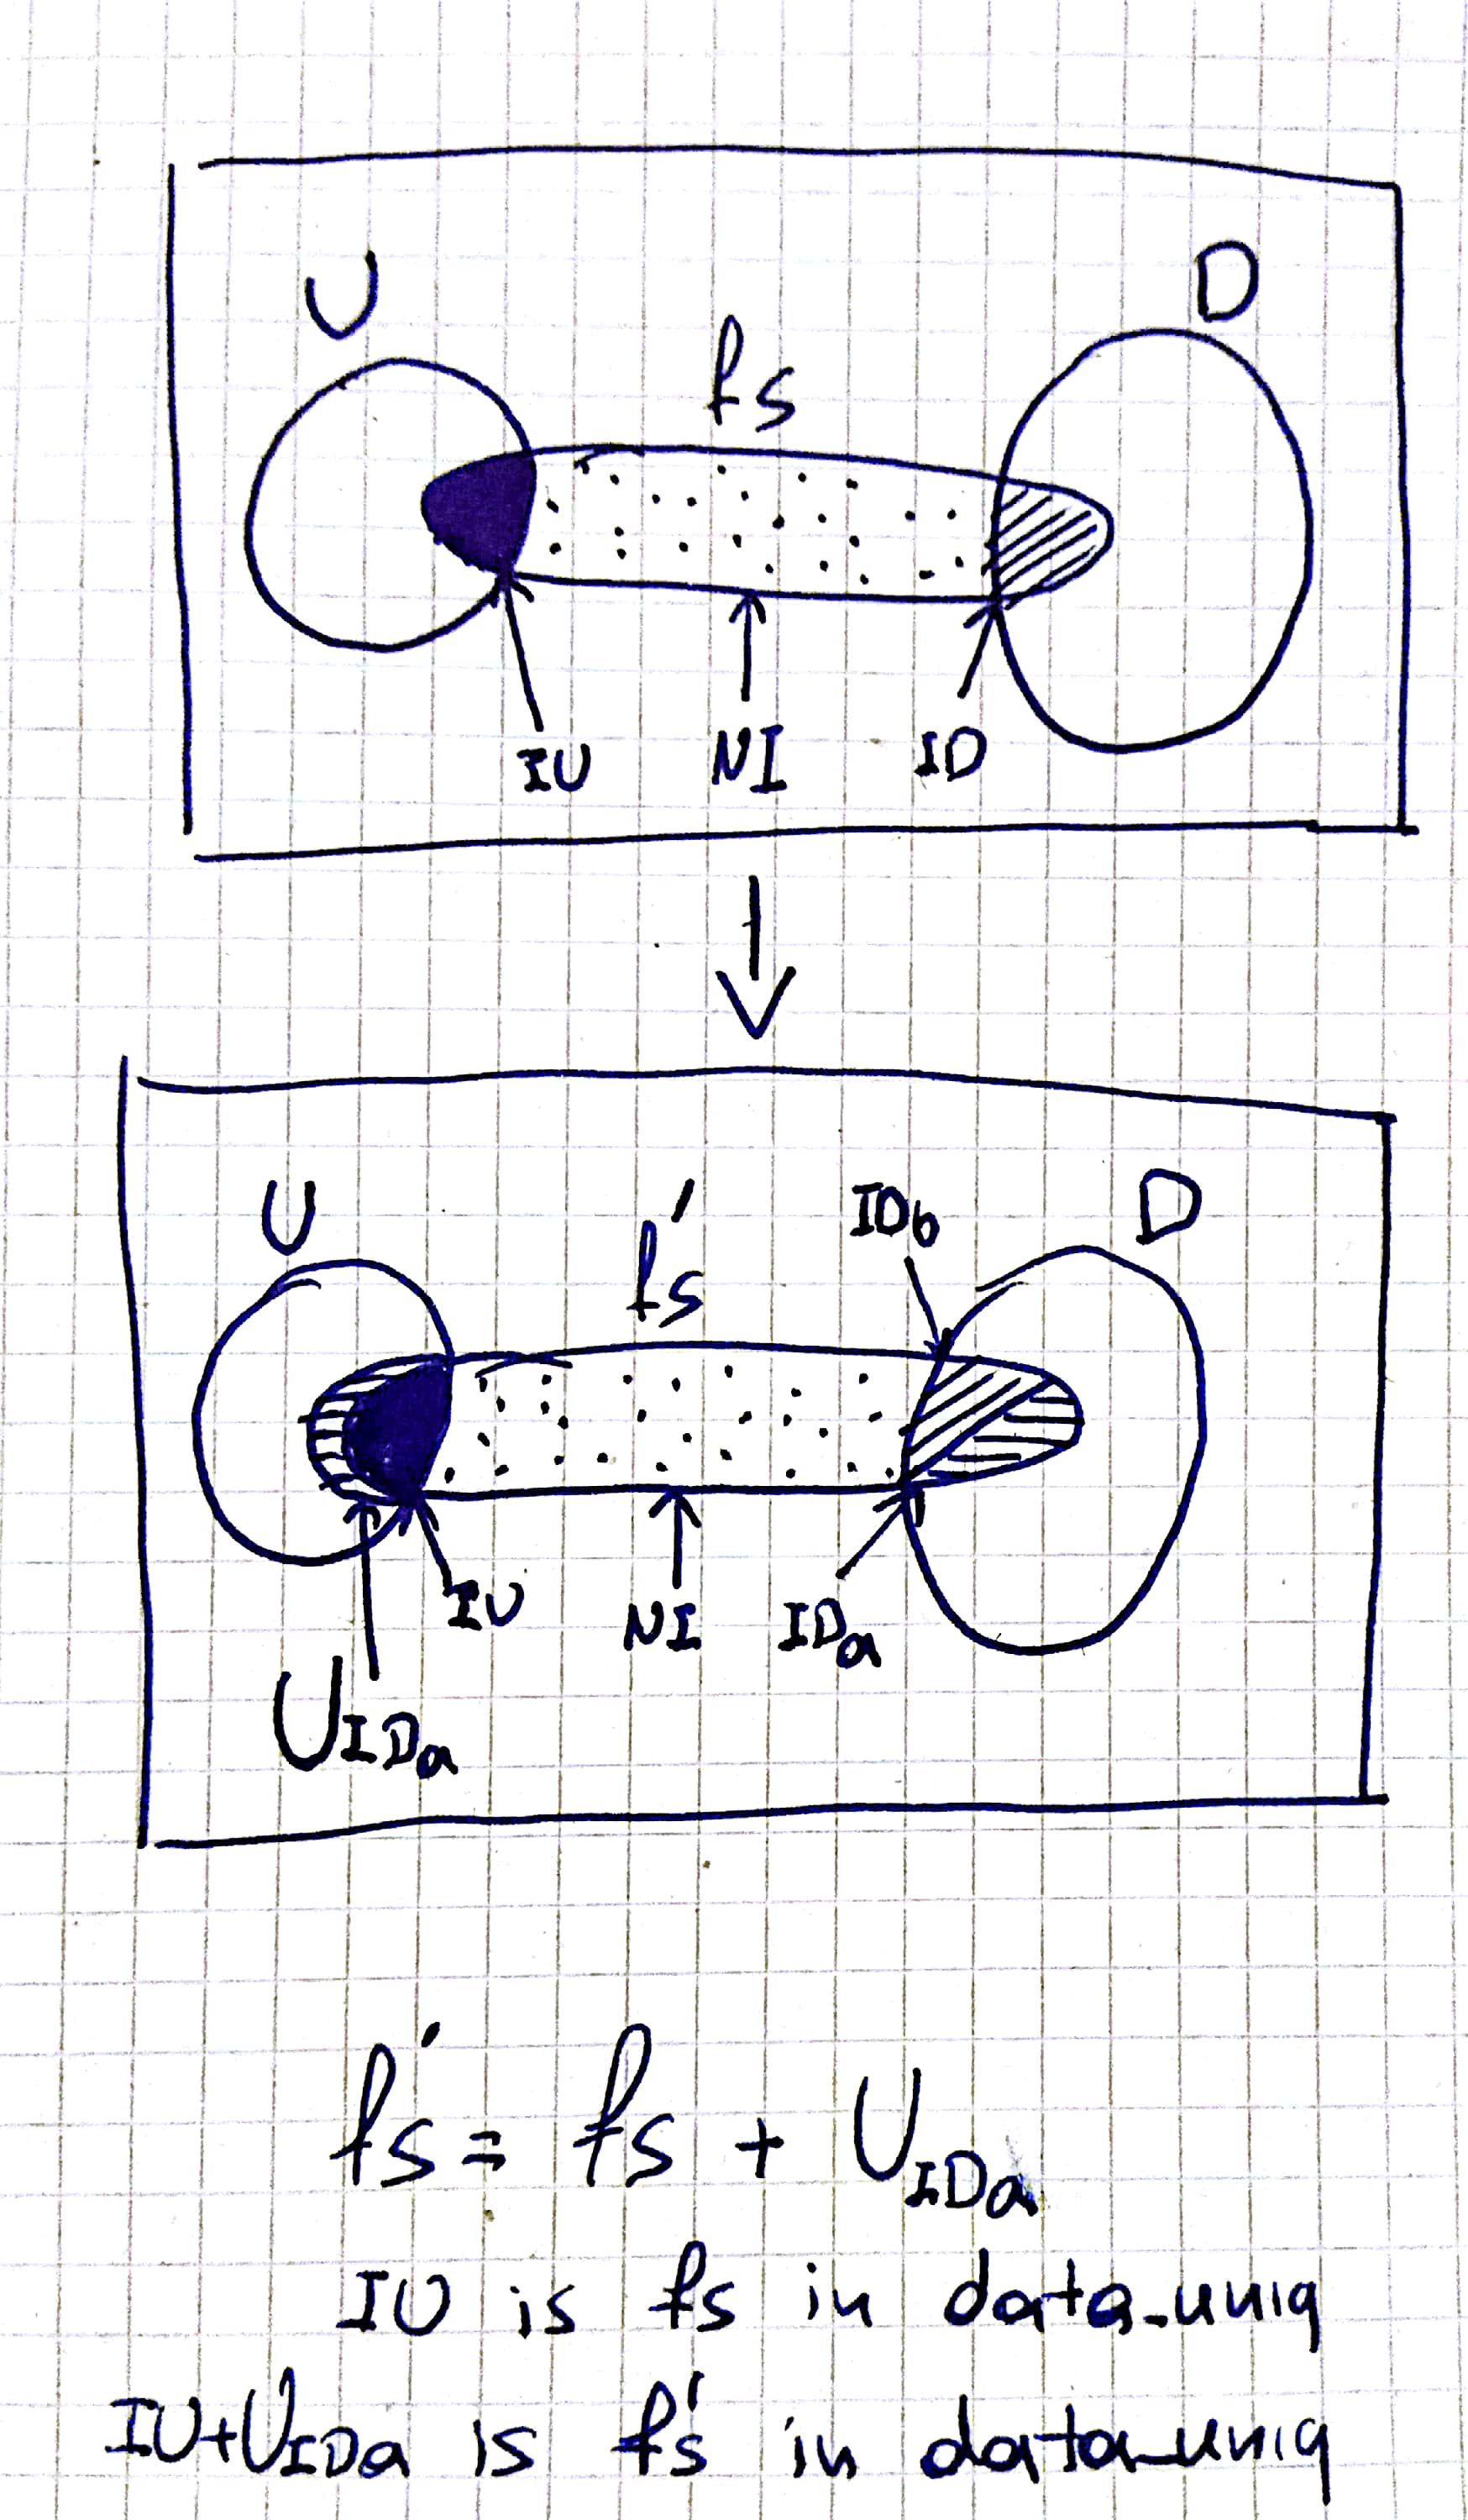 U
D
fs
IU NI ID
U
fs'
IDb
D
IU
NI
IDa
UIDa
fs' = fs + UIDa
IU is fs in data_uniq
IU+UIDa is fs' in data_uniq